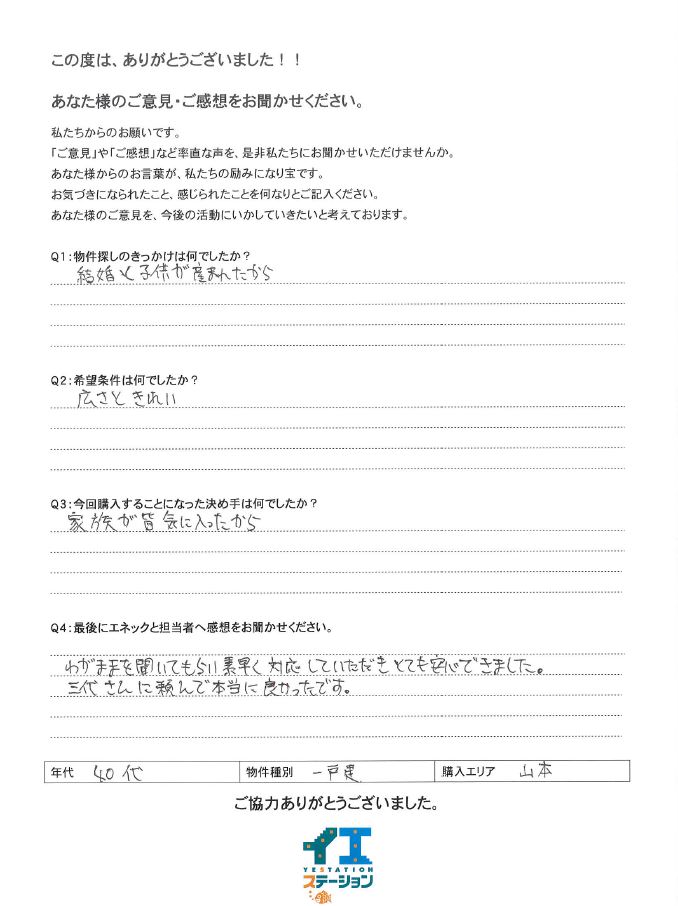 この度は、ありがとうございました！！
あなた様のご意見・ご感想をお聞かせください。
私たちからのお願いです。
「ご意見」や「ご感想」など率直な声を、是非私たちにお聞かせいただけませんか。
あなた様からのお言葉が、私たちの励みになり宝です。
お気づきになられたこと、感じられたことを何なりとご記入ください。
あなた様のご意見を、今後の活動にいかしていきたいと考えております。
Q1:物件探しのきっかけは何でしたか？
結婚と子供が産まれたから
Q2:希望条件は何でしたか？
広さときれい
Q3:今回購入することになった決め手は何でしたか？
家族が皆気に入ったから
Q4:最後にエネックと担当者へ感想をお聞かせください。
わがままを聞いてもらい素早く対応していただきとても安心できました。
三代さんに頼んで本当に良かったです。
年代 40代 物件種別 一戸建 購入エリア 山本
ご協力ありがとうございました。
イエ
YESTATION
ステーション